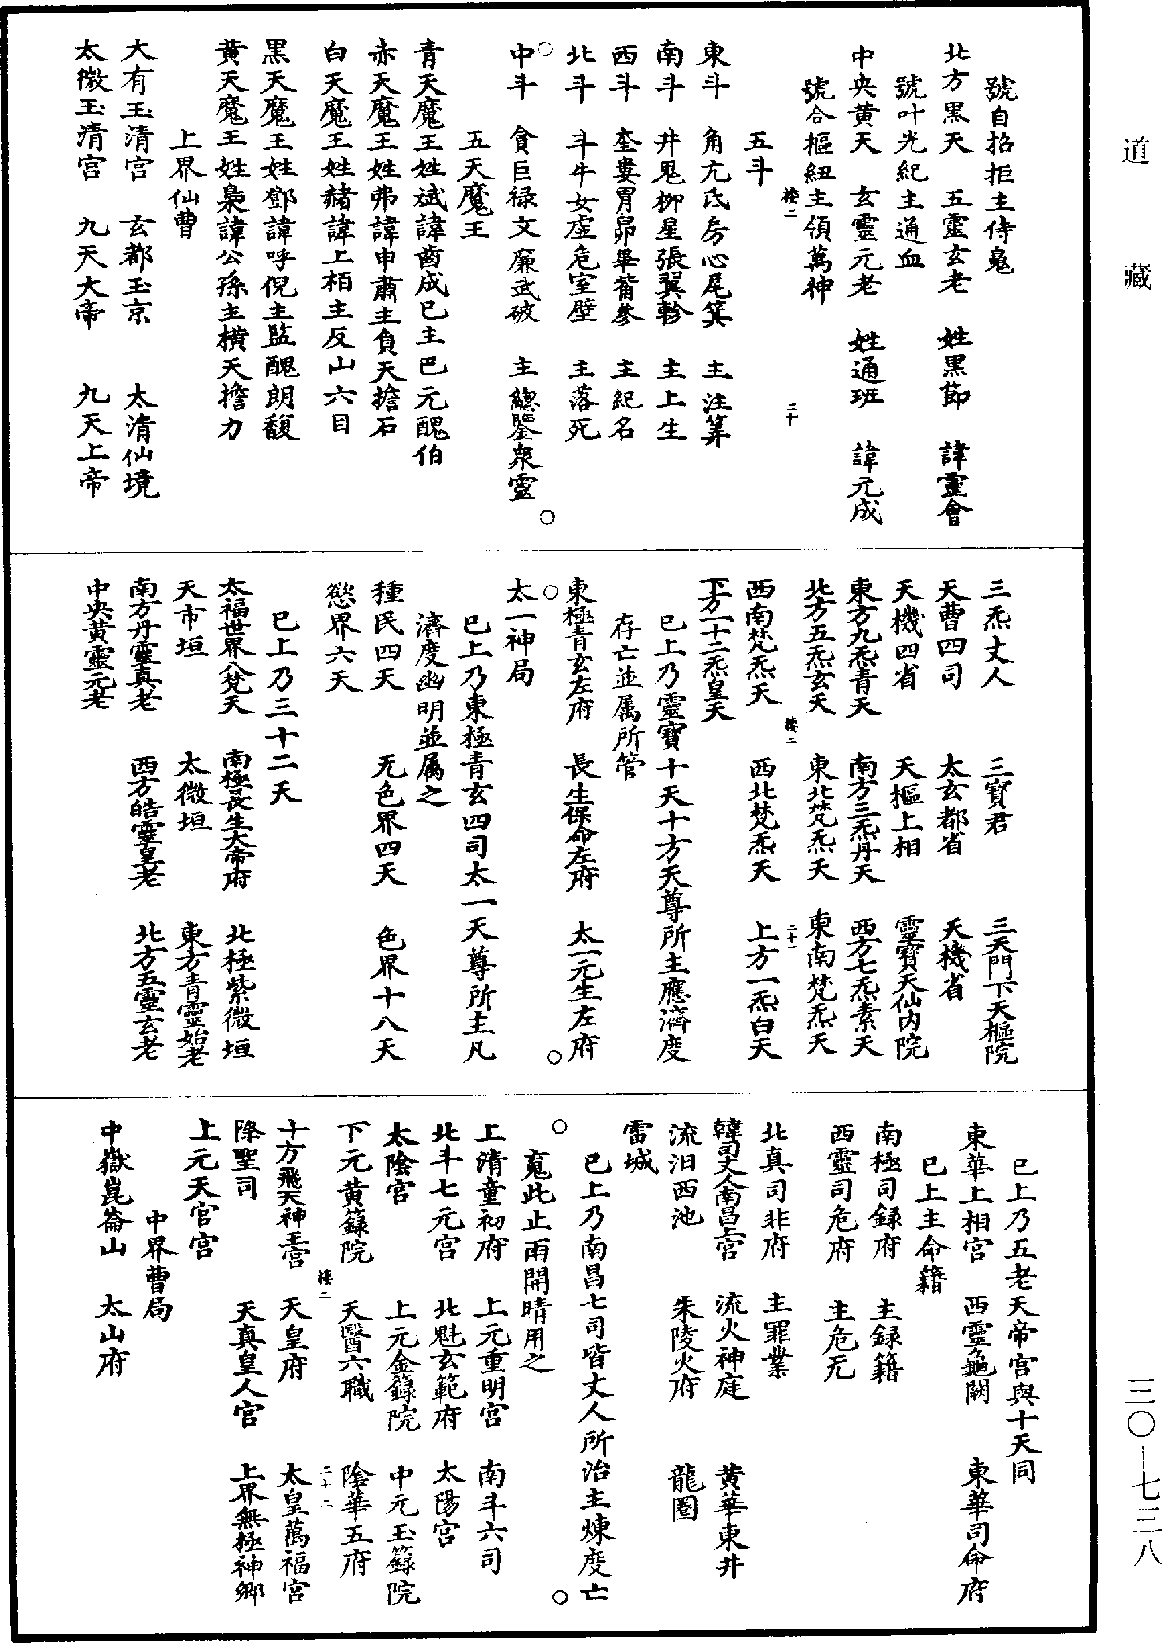 道藏
號自招拒主侍鬼
北方黑天　五靈玄老　姓黑節　諱靈會
號叶光紀主通血
中央黃天　玄靈元老　姓通班　諱元成
號合樞紐主領萬神
接二　二十
五斗
東斗　角亢氐房心尾箕　主注筭
南斗　井鬼柳星張翼軫　主上生
西斗　奎婁胃昴畢觜參　主紀名
北斗　斗牛女虛危室壁　主落死
○中斗　貪巨祿文廉武破　主總監衆靈○
五天魔王
青天魔王姓斌諱酋成巳主巴元醜伯
赤天魔王姓弗諱申肅主負天擔石
白天魔王姓赭諱上栢主反山六目
黑天魔王姓鄧諱呼倪主監醜朗馥
黃天魔王姓梟諱公孫主橫天擔力
上界仙曹
大有玉清宮　玄都玉京　太清仙境
太微玉清宮　九天大帝　九天上帝
三炁丈人　三寶君　三天門下天樞院
天曹四司　太玄都省　天機省
天機四省　天樞上相　靈寶天仙內院
東方九炁青天　南方三炁丹天　西方七炁素天
北方五炁玄天　東北梵炁天　東南梵炁天
接二　二十一
西南梵炁天　西北梵炁天　上方一炁白天
下方一十二炁皇天
已上乃靈寶十天十方天尊所主應濟度
存亡並属所管
○東極青玄左府　長生保命左府　太一元生左府○
太一神局
已上乃東極青玄四司太一天尊所主凡
濟度幽明並属之
種民四天　无色界四天　色界十八天
慾界六天
已上乃三十二天
太福世界八梵天　南極長生大帝府　北極紫微垣
天市垣　太微垣　東方青靈始老
南方丹靈真老　西方皓靈皇老　北方五靈玄老
中央黃靈元老
已上乃五老天帝宮與十天同
東華上相宮　西靈龜闕　東華司命府
已上主命籍
南極司錄府　主錄籍
西靈司危府　主危厄
北真司非府　主罪業
韓司丈人南昌上宮　流火神庭　黃華東井
流汨西池　朱陵火府　龍圈
雷城
已上乃南昌七司皆丈人所治主煉度亡
○䰟此止雨開晴用之○
上清童初府　上元重明宮　南斗六司
北斗七元宮　北魁玄範府　太陽宮
太陰宮　上元金籙院　中元玉籙院
下元黃籙院　天醫六職　陰華五府
接二　二十二
十方飛天神王宮　天皇府　太皇萬福宮
降聖司　天真皇人宮　上界無極神鄉
上元天官宮
中界曹局
中嶽崑崙山　太山府
三〇—七三八